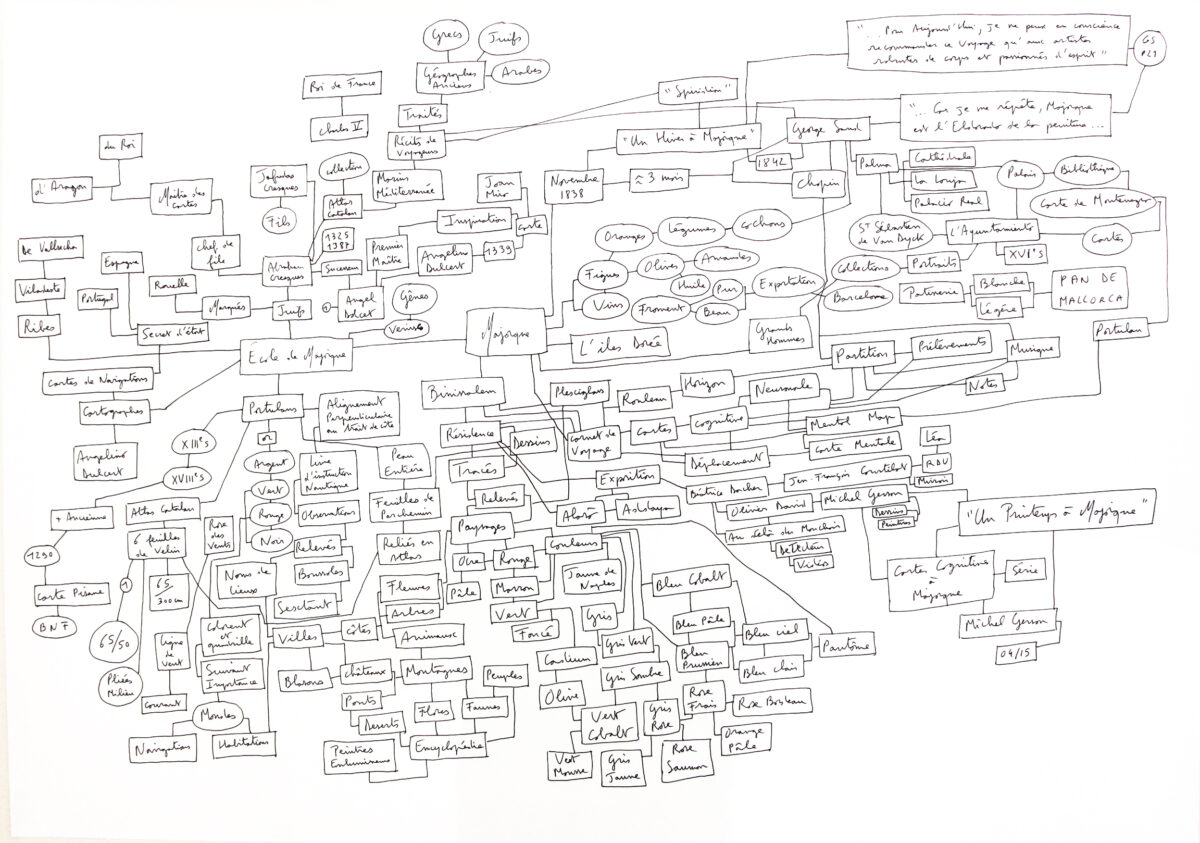 "...Pour Aujourd'hui, je ne peux en conscience
recommander ce voyage qu'aux artistes
robustes de corps et passionnés d'esprit"
GS
P29
Grecs
Juifs
Géographes
Anciens
Arabes
Roi de France
Charles V
Traités
Récits de
Voyageurs
"Spiridion"
"...Car je me répète, Majorque
est l'Eldorado de la peinture...
"Un Hiver à Majorque"
George Sand
1842
Novembre
1838
≈ 3 mois
Chopin
Palma
Cathédrale
La Lonja
Palacio Real
Palais
Bibliothèque
Carte de Montenegro
Cartes
St Sébastien
de Van Dyck
L'Ayuntamiento
XVI°s
Portraits
Collections
Barcelone
Patisserie
Blanche
Légère
PAN DE
MALLORCA
Portulan
du Roi
d'Aragon
Maître des
Cartes
Jafudas
Cresques
Fils
collection
Atlas
Catalan
Marins
Méditerranée
1325
1387
Joan
Miro
Inspiration
Carte
1339
Premier
Maître
Angelino
Dulcert
Successeur
Angel
Dolcet
Gênes
Venise
Abraham
Cresques
chef de
file
Juifs
Marqués
Rouelle
De Vallsecha
Viladeste
Ribes
Espagne
Portugal
Secret d'état
École de Majorque
Cartes de Navigations
Cartographes
Angelino
Dulcert
Majorque
L'îles Dorée
Oranges
Légumes
Cochons
Figues
Olives
Amandes
Vins
Huile
Froment
Pur
Beau
Exportation
Grands
Hommes
Partition
Prélèvements
Musique
Notes
Binissalem
Plesciglass
Rouleau
Horizon
Neuronale
Résidence
Dessins
Carnet de
Voyage
Cartes
cognitive
Mental Map
Carte Mentale
Déplacement
Tracés
Relevés
Exposition
Alarò
Paysages
Couleurs
Béatrice Bucher
Jean-François Courtilat
Léa
RDV
Olivier David
Michel Gerson
Dessins
Peintures
Vidéos
"Un Printemps à Majorque"
Cartes Cognitives
à
Majorque
Série
Michel Gerson
04/15
Portulans
Alignement
Perpendiculaire
au trait de côte
XIII°s
XVIII°s
or
Argent
Vert
Rouge
Noir
Livre
d'instruction
Nautique
Observations
Relevés
Boussoles
Sesctant
Peau
Entière
Feuilles de
Parchemin
Reliés en
Atlas
Fleuves
Arbres
+ Ancienne
1290
Carte Pisane
BNF
Atlas Catalan
6 feuilles
de Velin
65/
300cm
65/50
Pliées
Milieu
Rose
des
Vents
Noms de
Lieux
Ligne
de
Vent
Courant
Suivant
Importance
Monde
Navigation
Habitations
Villes
Côtes
Blasons
châteaux
Ponts
Deserts
Animaux
Montagnes
Peuples
Flores
Faunes
Peintres
Enlumineurs
Encyclopédie
Ocre
Pâle
Rouge
Marron
Vert
Foncé
Jaune de
Naples
Gris
Gris Vert
Gris Sombre
Olive
Vert
Cobalt
Vert
Mousse
Gris
Jaune
Gris
Rose
Rose
Saumon
Bleu Cobalt
Bleu Pâle
Bleu
Prussien
Bleu ciel
Bleu clair
Rose
Frais
Rose Bonbon
Orange
Pâle
Fantôme